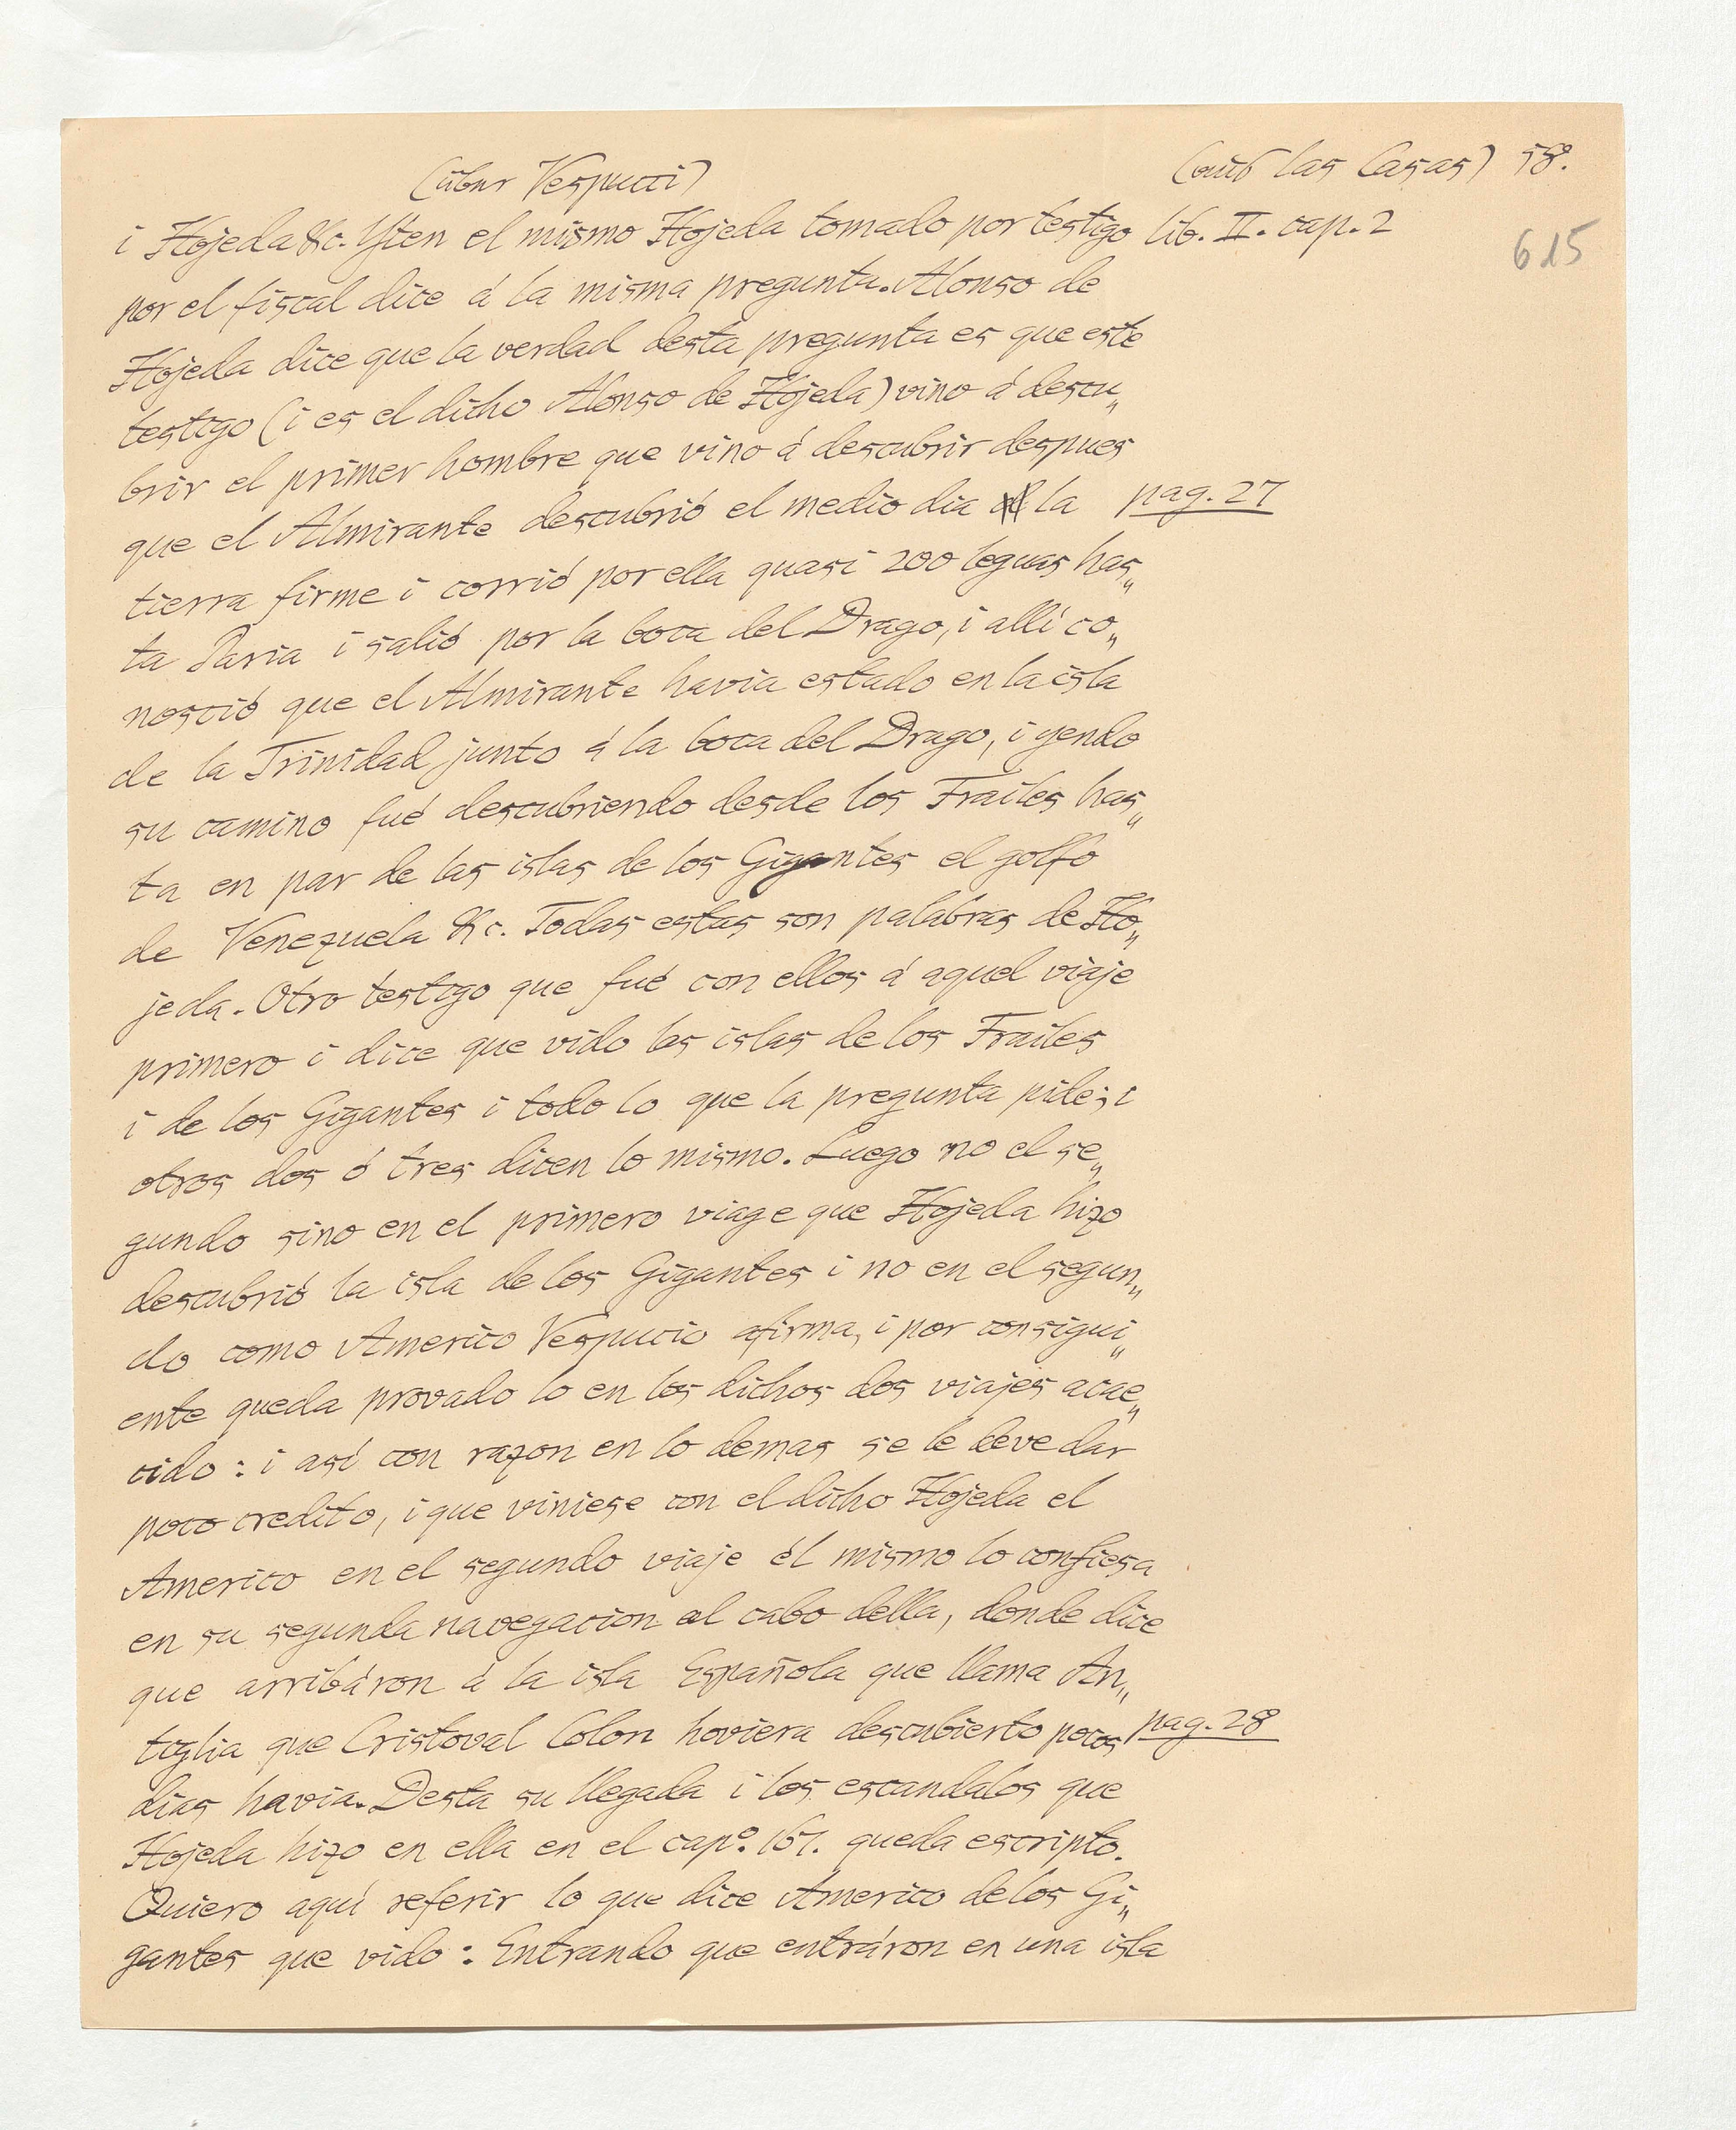 (über Vespucci)
(aus las Casas) 58.
615
i Hojeda &c. Yten el mismo Hojeda tomado por testigo lib. II. cap. 2
por el fiscal dice á la misma pregunta. Alonso de
Hojeda dice que la verdad desta pregunta es que este
testigo (i es el dicho Alonso de Hojeda) vino á descu„
brir el primer hombre que vino á descubrir despues
que el Almirante descubrió el medio dia la pag. 27
tierra firme i corrió por ella quasi 200 leguas has„
ta Paria i salió por la boca del Drago, i allí co„
nosció que el Almirante havia estado en la isla
de la Trinidad junto á la boca del Drago, i yendo
su camino fué descubriendo desde los Frailes has„
ta en par de las islas de los Gigantes el golfo
de Venezuela &c. Todas estas son palabras de Ho„
jeda. Otro testigo que fué con ellos á aquel viaje
primero i dice que vido las islas de los Frailes
i de los Gigantes i todo lo que la pregunta pide; i
otros dos ó tres dicen lo mismo. Luego no el se„
gundo sino en el primero viage que Hojeda hizo
descubrió la isla de los Gigantes i no en el segun„
do como Americo Vespucio afirma, i por consigui„
ente queda provado lo en los dichos dos viajes acae„
cido: i así con razon en lo demas se le deve dar
poco credito, i que viniese con el dicho Hojeda el
Americo en el segundo viaje él mismo lo confiesa
en su segunda navegacion al cabo della, donde dice
que arribáron á la isla Española que llama An„
tiglia que Cristoval Colon hoviera descubierto pocos pag. 28
dias havia. Desta su llegada i los escandalos que
Hojeda hizo en ella en el capº. 167. queda escripto.
Quiero aquí referir lo que dice Americo de los Gi„
gantes que vido: Entrando que entráron en una isla